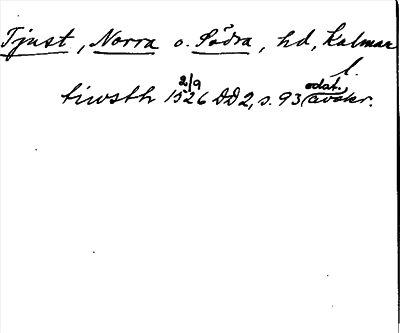 Tjust, Norra o. Södra, hd, Kalmar
l.
tiwsth 1526 2/9 DD2, s. 93 (odat. avskr.